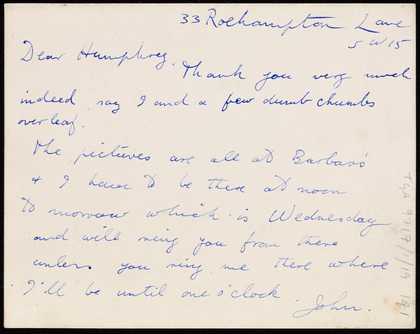 33 Roehampton Lane
SW15
Dear Humphrey.
Thank you very much
indeed, say I and a few dumb chumbs
overleaf.
The pictures are all at Barbara's
& I have to be there at noon
tomorrow which is Wednesday
and will ring you from there
unless you ring me there where
I'll be until one o'clock.
John.